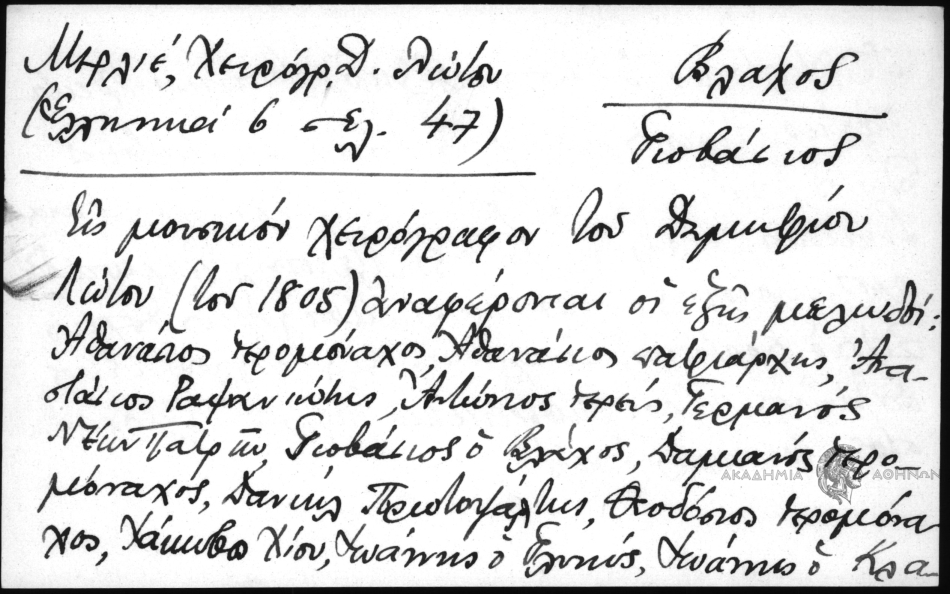 Μερλιέ, Χειρόγρ. Δ. Λώτου
(Ἑλληνικά 6 σελ. 47)
Βλάχος
Γιοβάσιος
Εἰς μουσικόν χειρόγραφον τοῦ Δημητρίου
Λώτου (τοῦ 1805) ἀναφέρονται οἱ ἑξῆς μελωδοί:
Ἀθανάσιος ἱερομόναχος, Ἀθανάσιος πατριάρχης, Ἀνα-
στάσιος Ραψανιώτης, Ἀντώνιος ἱερεύς, Γερμανός
Νέων Πατρῶν, Γιοβάσιος ὁ Βλάχος, Δαμιανός ἱερο-
μόναχος, Δανιήλ Πρωτοψάλτης, Θεοδόσιος ἱερομόνα
χος, Ἰάκωβος Χίου, Ἰωάννης ὁ Γλυκύς, Ἰωάννης ὁ Κλα-
ΑΚΑΔΗΜΙΑ ΑΘΗΝΩΝ